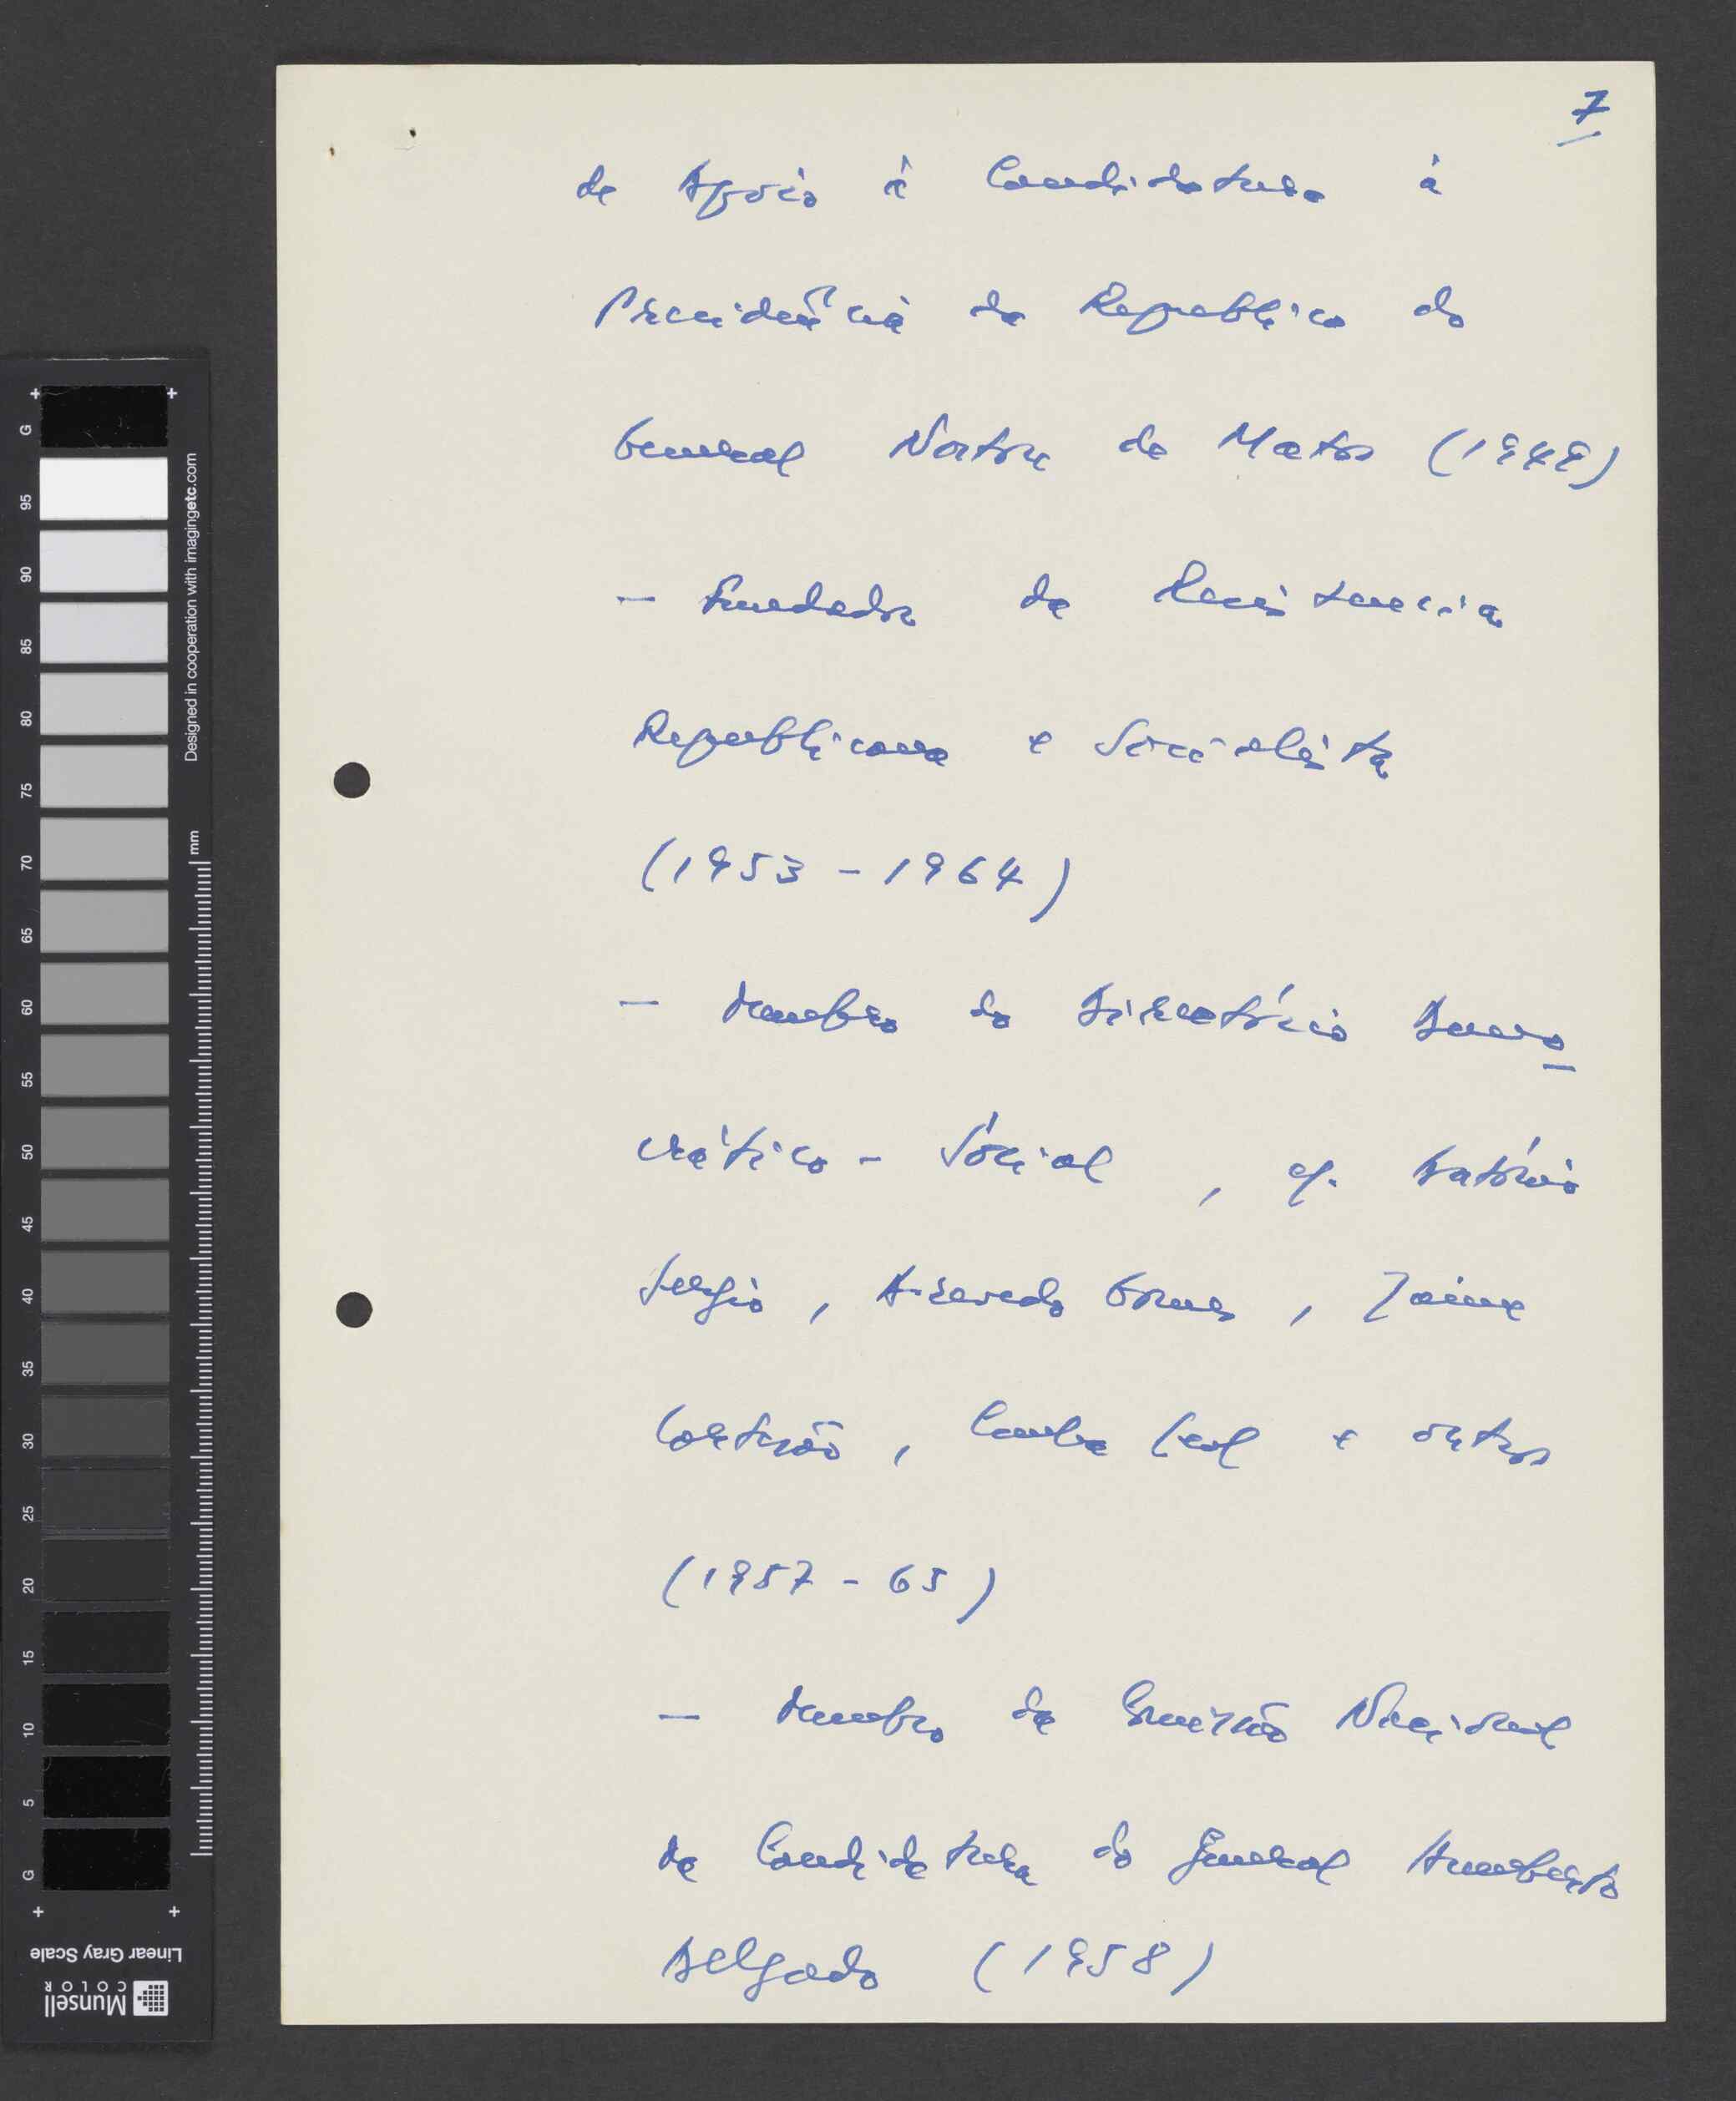 7
de Apoio à Candidatura à
Presidência da Republica do
General Norton de Matos (1949)
- fundador da Resistencia
Republicana e Socialista
(1953 - 1964)
- membro do Directório Demo
crático - Social, cf. António
Sergio, Azevedo Gomes, Jaime
Cortesão, Cunha Leal e outros
(1957 - 65)
- membro da Comissão Nacional
da Candidatura do general Humberto
Delgado (1958)
G
95
90
85
80
75
70
65
60
55
50
45
40
35
30
25
20
15
10
5
G
Designed in cooperation with imagingetc.com
mm
Linear Gray Scale
Munsell
COLOR